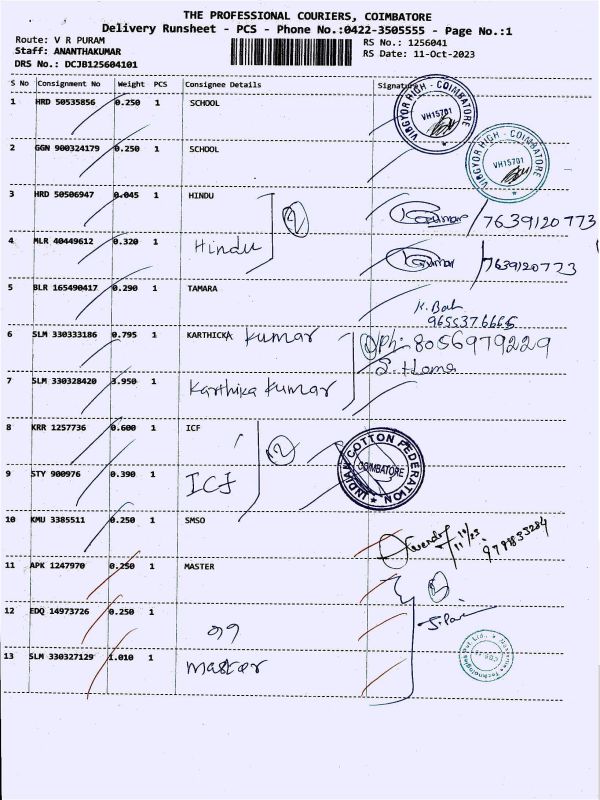 THE PROFESSIONAL COURIERS, COIMBATORE
Delivery Runsheet - PCS - Phone No.:0422-3505555 - Page No.:1
Route: V R PURAM
RS No.: 1256041
Staff: ANANTHAKUMAR
RS Date: 11-Oct-2023
DRS No.: DCJB125604101
S No Consignment No Weight PCS Consignee Details Signature
1 HRD 50535856 0.250 1 SCHOOL
VIBGYOR HIGH - COIMBATORE
VH15701
2 GGN 900324179 0.250 1 SCHOOL
VIBGYOR HIGH - COIMBATORE
VH15701
3 HRD 50506947 0.045 1 HINDU
2
Kumar 7639120773
4 MLR 40449612 0.320 1 Hindu
Kumar 7639120773
5 BLR 165490417 0.290 1 TAMARA
9655376665
6 SLM 330333186 0.795 1 KARTHICKA Kumar
2 Ph: 8056979229
S. Hema
7 SLM 330328420 3.950 1 Karthika Kumar
8 KRR 1257736 0.600 1 ICF
2
INDIAN COTTON FEDERATION
COIMBATORE
9 STY 900976 0.390 1 ICF
10 KMU 3385511 0.250 1 SMSO
11 APK 1247970 0.250 1 MASTER
2
12 EDQ 14973726 0.250 1
13 SLM 330327129 1.010 1 master